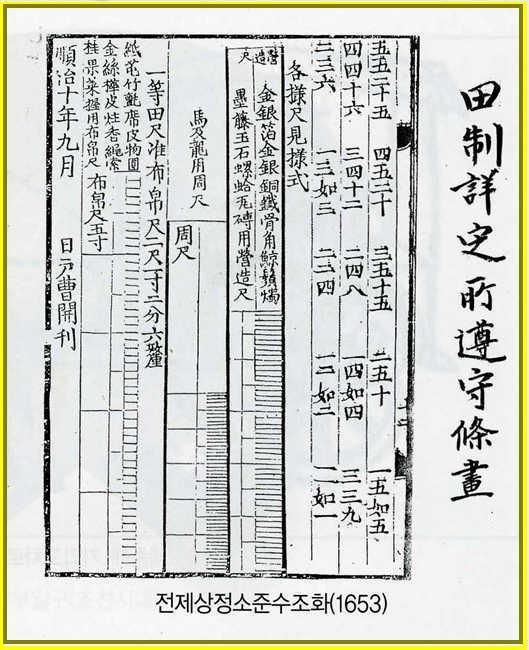 田制詳定所遵守條畫
五五二十五 四五二十 三五十五 二五十 一五如五
四四十六 三四十二 二四八 一四如四 三三九
二三六 一三如三 二二四 一二如二 一一如一
各樣尺見樣式
營造尺
金銀箔金銀銅鐵骨角鯨鬚燭
墨藤玉石螺蛤瓦磚用營造尺
周尺
馬及龍用周尺
一等田尺准布帛尺二尺一寸二分六釐
紙芚竹氈席皮物圓
金絲樺皮炷香繩索
桂果菜握用布帛尺
布帛尺五寸
順治十年九月 日戶曹開刊
전제상정소준수조화(1653)